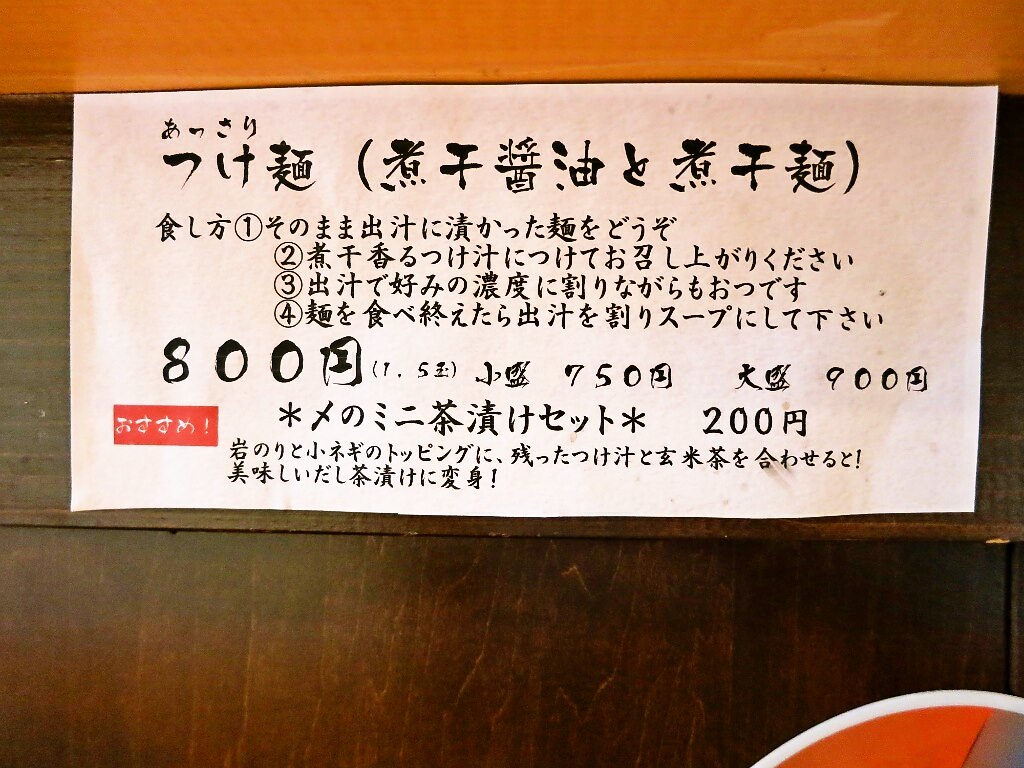 あっさり
つけ麺（煮干醤油と煮干麺）
食し方①そのまま出汁に漬かった麺をどうぞ
②煮干香るつけ汁につけてお召し上がりください
③出汁で好みの濃度に割りながらもおつです
④麺を食べ終えたら出汁を割りスープにして下さい
８００円（１．５玉） 小盛 ７５０円 大盛 ９００円
おすすめ！ ＊〆のミニ茶漬けセット＊ ２００円
岩のりと小ネギのトッピングに、残ったつけ汁と玄米茶を合わせると！
美味しいだし茶漬けに変身！